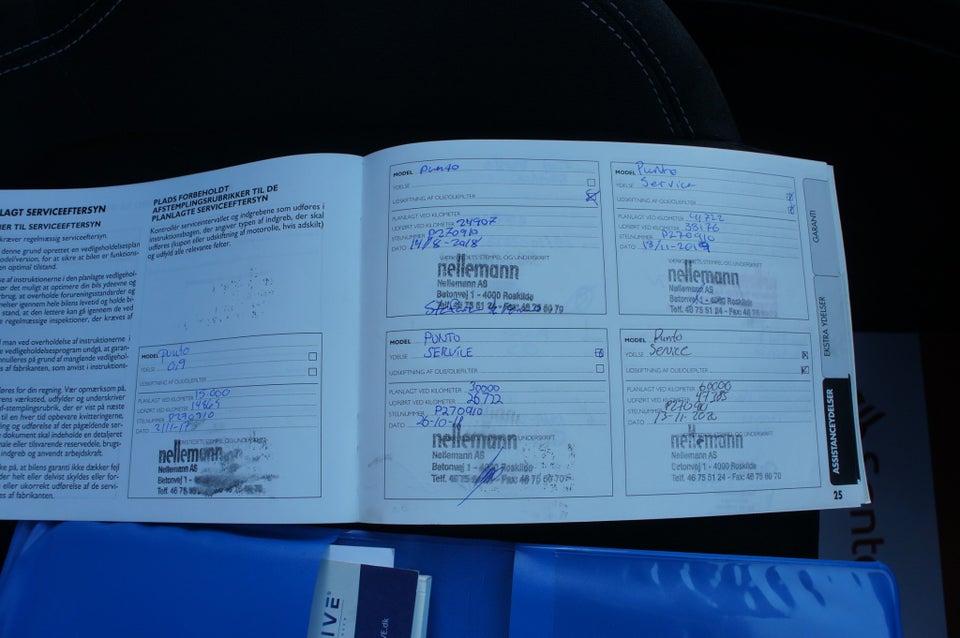 LAGT SERVICEEFTERSYN
ER TIL SERVICEEFTERSYN
kræver regelmæssig serviceeftersyn.
denne grund oprettet en vedligeholdelsesplan
odel/version, for at sikre at bilen er funktions-
en optimal tilstand.
se af instruktionerne i den planlagte vedligehol-
ør det muligt at optimere din bils ydeevne og
rbrug, at overholde forureningsstandarder og
elser gennem hele bilens levetid og holde bi-
stand, at den lettere kan gå igennem de ved
e regelmæssige inspektioner, der kræves af
man ved overholdelse af instruktionerne i
vedligeholdelsesprogram undgå, at garan-
nulleres på grund af manglende vedligehol-
s af fabrikanten, som anvist i instruktions-
øres for din regning. Vær opmærksom på,
rens værksted, udfylder og underskriver
f-stemplingsrubrik, der er vist på næste
til en hver tid opbevare kvitteringerne,
ng og udførelse af det pågældende ser-
dokument skal indeholde en detaljeret
nale eller tilsvarende reservedele, brugs-
indgreb og anvendt arbejdskraft.
ke på, at bilens garanti ikke dækker fejl
der helt eller delvist skyldes eller for-
eller ukorrekt udførelse af de servi-
es af fabrikanten.
PLADS FORBEHOLDT
AFSTEMPLINGSRUBRIKKER TIL DE
PLANLAGTE SERVICEEFTERSYN
Kontrollér serviceintervallet og indgrebene som udføres i
instruktionsbogen, der angiver typen af indgreb, der skal
udføres (kupon eller udskiftning af motorolie, hvis adskilt)
og udfyld alle relevante felter.
MODEL Punto
YDELSE 0,9
UDSKIFTNING AF OLIE/OLIEFILTER
PLANLAGT VED KILOMETER 15.000
UDFØRT VED KILOMETER
STELNUMMER P270910
DATO
nellemann
Nellemann AS
Betonvej 1 -
Telf. 46 75 51
MODEL Punto
YDELSE
UDSKIFTNING AF OLIE/OLIEFILTER
PLANLAGT VED KILOMETER
UDFØRT VED KILOMETER 24907
STELNUMMER P270910
DATO 14/8-2018
VÆRKSTEDETS STEMPEL OG UNDERSKRIFT
nellemann
Nellemann AS
Betonvej 1 - 4000 Roskilde
Telf. 46 75 51 24 - Fax: 46 75 60 70
MODEL PUNTO
YDELSE SERVICE
UDSKIFTNING AF OLIE/OLIEFILTER
PLANLAGT VED KILOMETER 30000
UDFØRT VED KILOMETER 26722
STELNUMMER P270910
DATO 26-10-18
nellemann
Nellemann AS
Betonvej 1 - 4000 Roskilde
Telf. 46 75 - Fax: 46 75
MODEL Punto
YDELSE Service
UDSKIFTNING AF OLIE/OLIEFILTER
PLANLAGT VED KILOMETER 41722
UDFØRT VED KILOMETER 38176
STELNUMMER P270910
DATO 13/11-2019
VÆRKSTEDETS STEMPEL OG UNDERSKRIFT
nellemann
Nellemann AS
Betonvej 1 - 4000 Roskilde
Telf. 46 75 51 24 - Fax: 46 75 60 70
MODEL Punto
YDELSE Service
UDSKIFTNING AF OLIE/OLIEFILTER
PLANLAGT VED KILOMETER 60000
UDFØRT VED KILOMETER
STELNUMMER
DATO 13-11-2020
nellemann
Nellemann AS
Betonvej 1 - 4000 Roskilde
Telf. 46 75 51 24 - Fax: 46 75 60 70
GARANTI
EKSTRA YDELSER
ASSISTANCEYDELSER
25
IVE
VE.dk